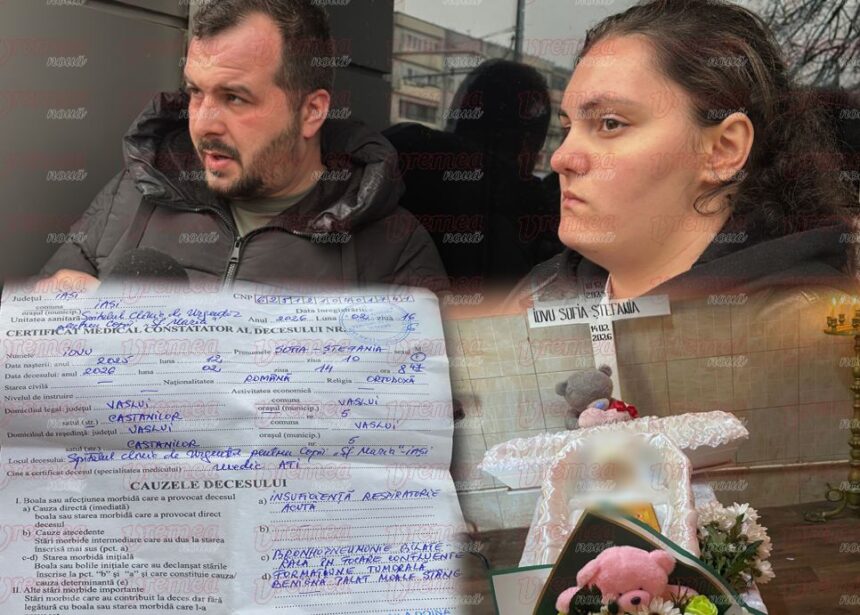 Vremea nouă
Județul IAȘI CNP
comuna IAȘI Data înregistrării
Unitatea sanitară Spitalul Clinic de Urgență Anul 2026 Luna 02 ziua 16
pentru Copii "Sf. Maria"
CERTIFICAT MEDICAL CONSTATATOR AL DECESULUI NR.
Numele IOVU Prenumele SOFIA STEFANIA sexul
Data nașterii: anul 2025 luna 12 ziua 10
Data decesului: anul 2026 luna 02 ziua 14 ora
Starea civilă — Naționalitatea ROMÂNĂ Religia ORTODOXĂ
Nivelul de instruire — Activitatea economică —
Domiciliul legal: județul VASLUI comuna VASLUI
orașul (municip.)
satul (str.) CASTANILOR nr. 5
Domiciliul de reședință: județul VASLUI comuna VASLUI
orașul (municip.)
satul (str.) CASTANILOR nr. 5
Locul decesului: Spitalul clinic de Urgență pentru Copii "Sf Maria" - Iași
Cine a certificat decesul (specialitatea medicului) medic ATI
CAUZELE DECESULUI
I. Boala sau afecțiunea morbidă care a provocat decesul
a) Cauza directă (imediată)
boala sau starea morbidă care a provocat direct
decesul
b) Cauze atecedente
Stări morbide intermediare care au dus la starea
înscrisă mai sus (pct. a)
c-d) Starea morbidă inițială
Boala sau bolile inițiale care au declanșat stările
înscrise la pct. "b" și "a" și care constituie cauza
cauza determinantă (e)
II. Alte stări morbide importante
Stări morbide care au contribuit la deces dar fără
legătură cu boala sau starea morbidă care l-a
a) INSUFICIENȚĂ RESPIRATORIE
ACUTĂ
b)
c) BRONHOPNEUMONIE BILATE
RALA ÎN FOCARE CONFLUENTE
d) FORMAȚIUNE TUMORALĂ
BENIGNĂ PALAT MOALE STÂNG
IOVU SOFIA ȘTEFANIA
14.02
2026